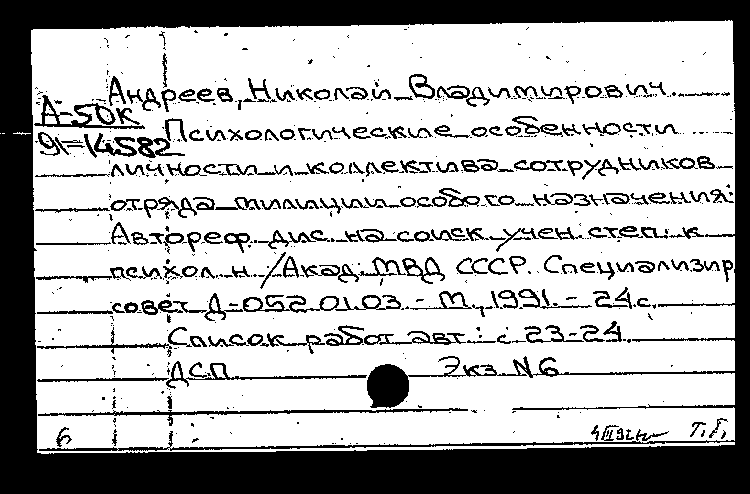 Андреев, Николай Владимирович.
А-50К
91-14582
Психологические особенности
личности и коллектива сотрудников
отряда милиции особого назначения:
Автореф. дис. на соиск. учен. степ. к.
психол. н. /Акад. МВД СССР. Специализир.
совет Д-052.01.03. - М., 1991. - 24 с.
Список работ авт.: с. 23-24.
ДСП Экз. N 6
6 4 III 92 Т.Г.